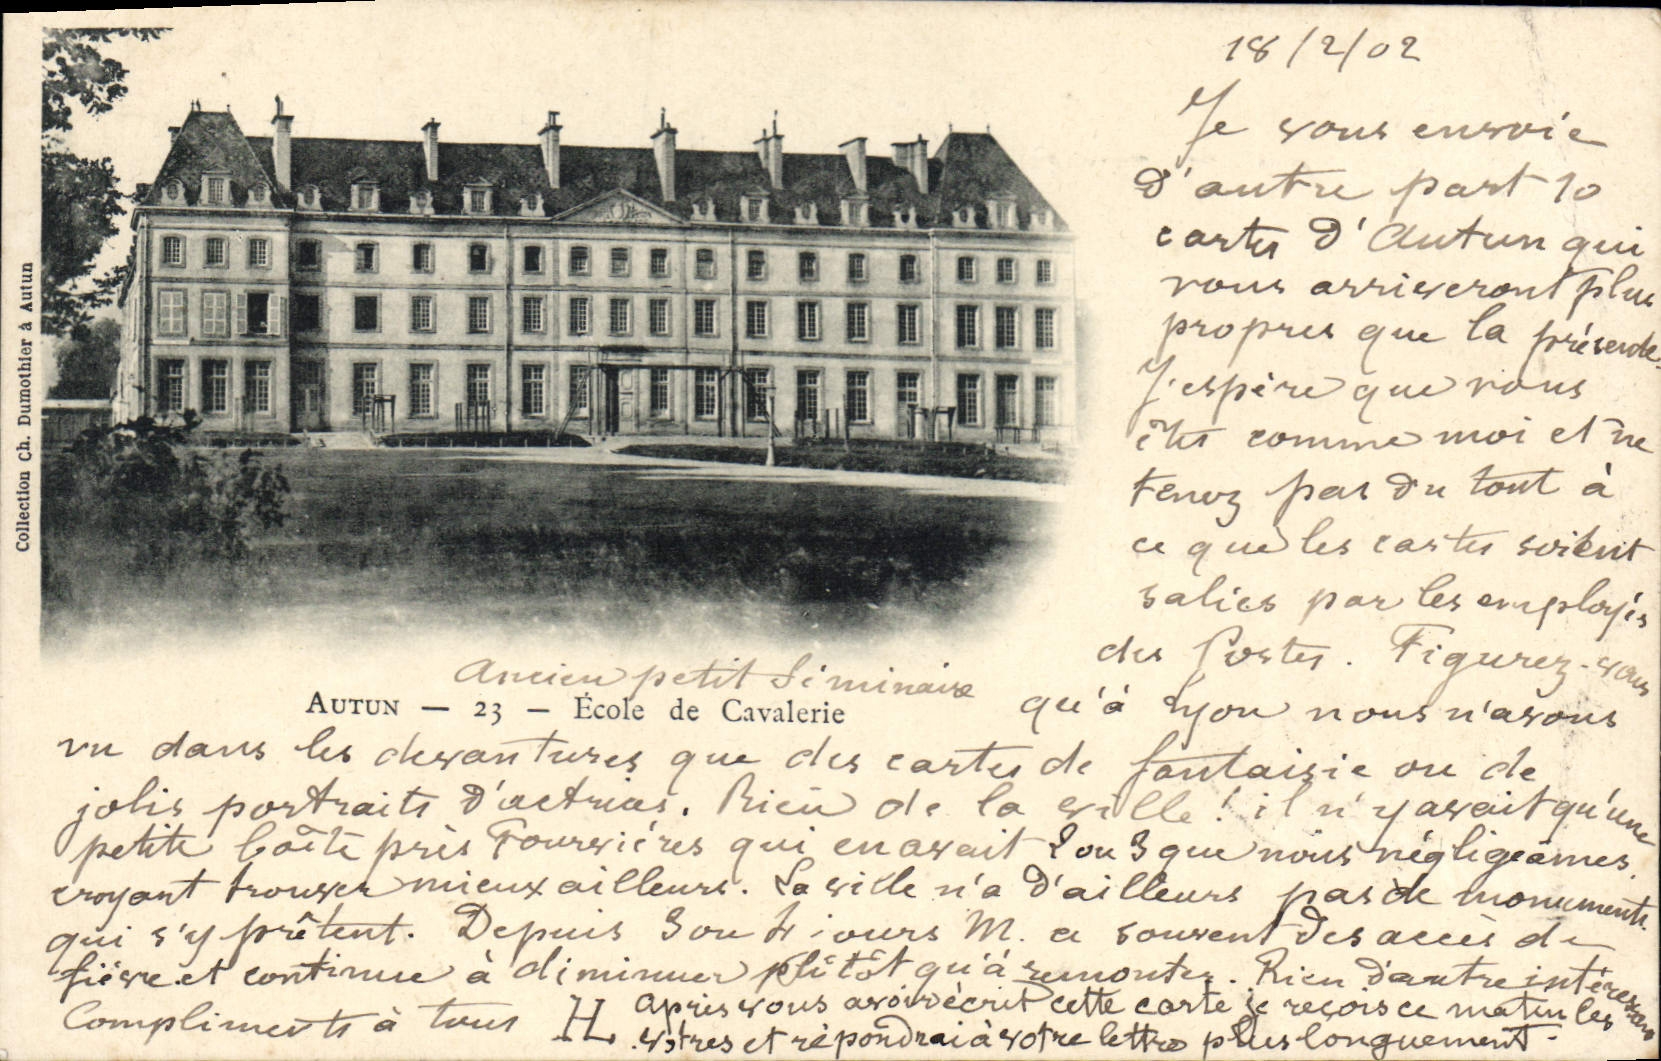 18/2/02
Je vous envoie
d'autre part 10
cartes d'Autun qui
vous arriveront plus
propres que la présente.
J'espère que vous
êtes comme moi et ne
tenez pas du tout à
ce que les cartes soient
salies par les employés
des Postes. Figurez-vous
Ancien petit Séminaire
qu'à Lyon nous n'avons
AUTUN — 23 — École de Cavalerie
Collection Ch. Dumothier à Autun
vu dans les devantures que des cartes de fantaisie ou de
jolis portraits d'actrices. Rien de la ville ! il n'y avait qu'une
petite boîte près Fourvières qui en avait 2 ou 3 que nous négligeâmes,
croyant trouver mieux ailleurs. La ville n'a d'ailleurs pas de monuments
qui s'y prêtent. Depuis 3 ou 4 jours M. a souvent des accès de
fièvre et continue à diminuer plutôt qu'à remonter. Rien d'autre intéressant
Compliments à tous H
Après vous avoir écrit cette carte je reçois ce matin les
vôtres et répondrai à votre lettre plus longuement.